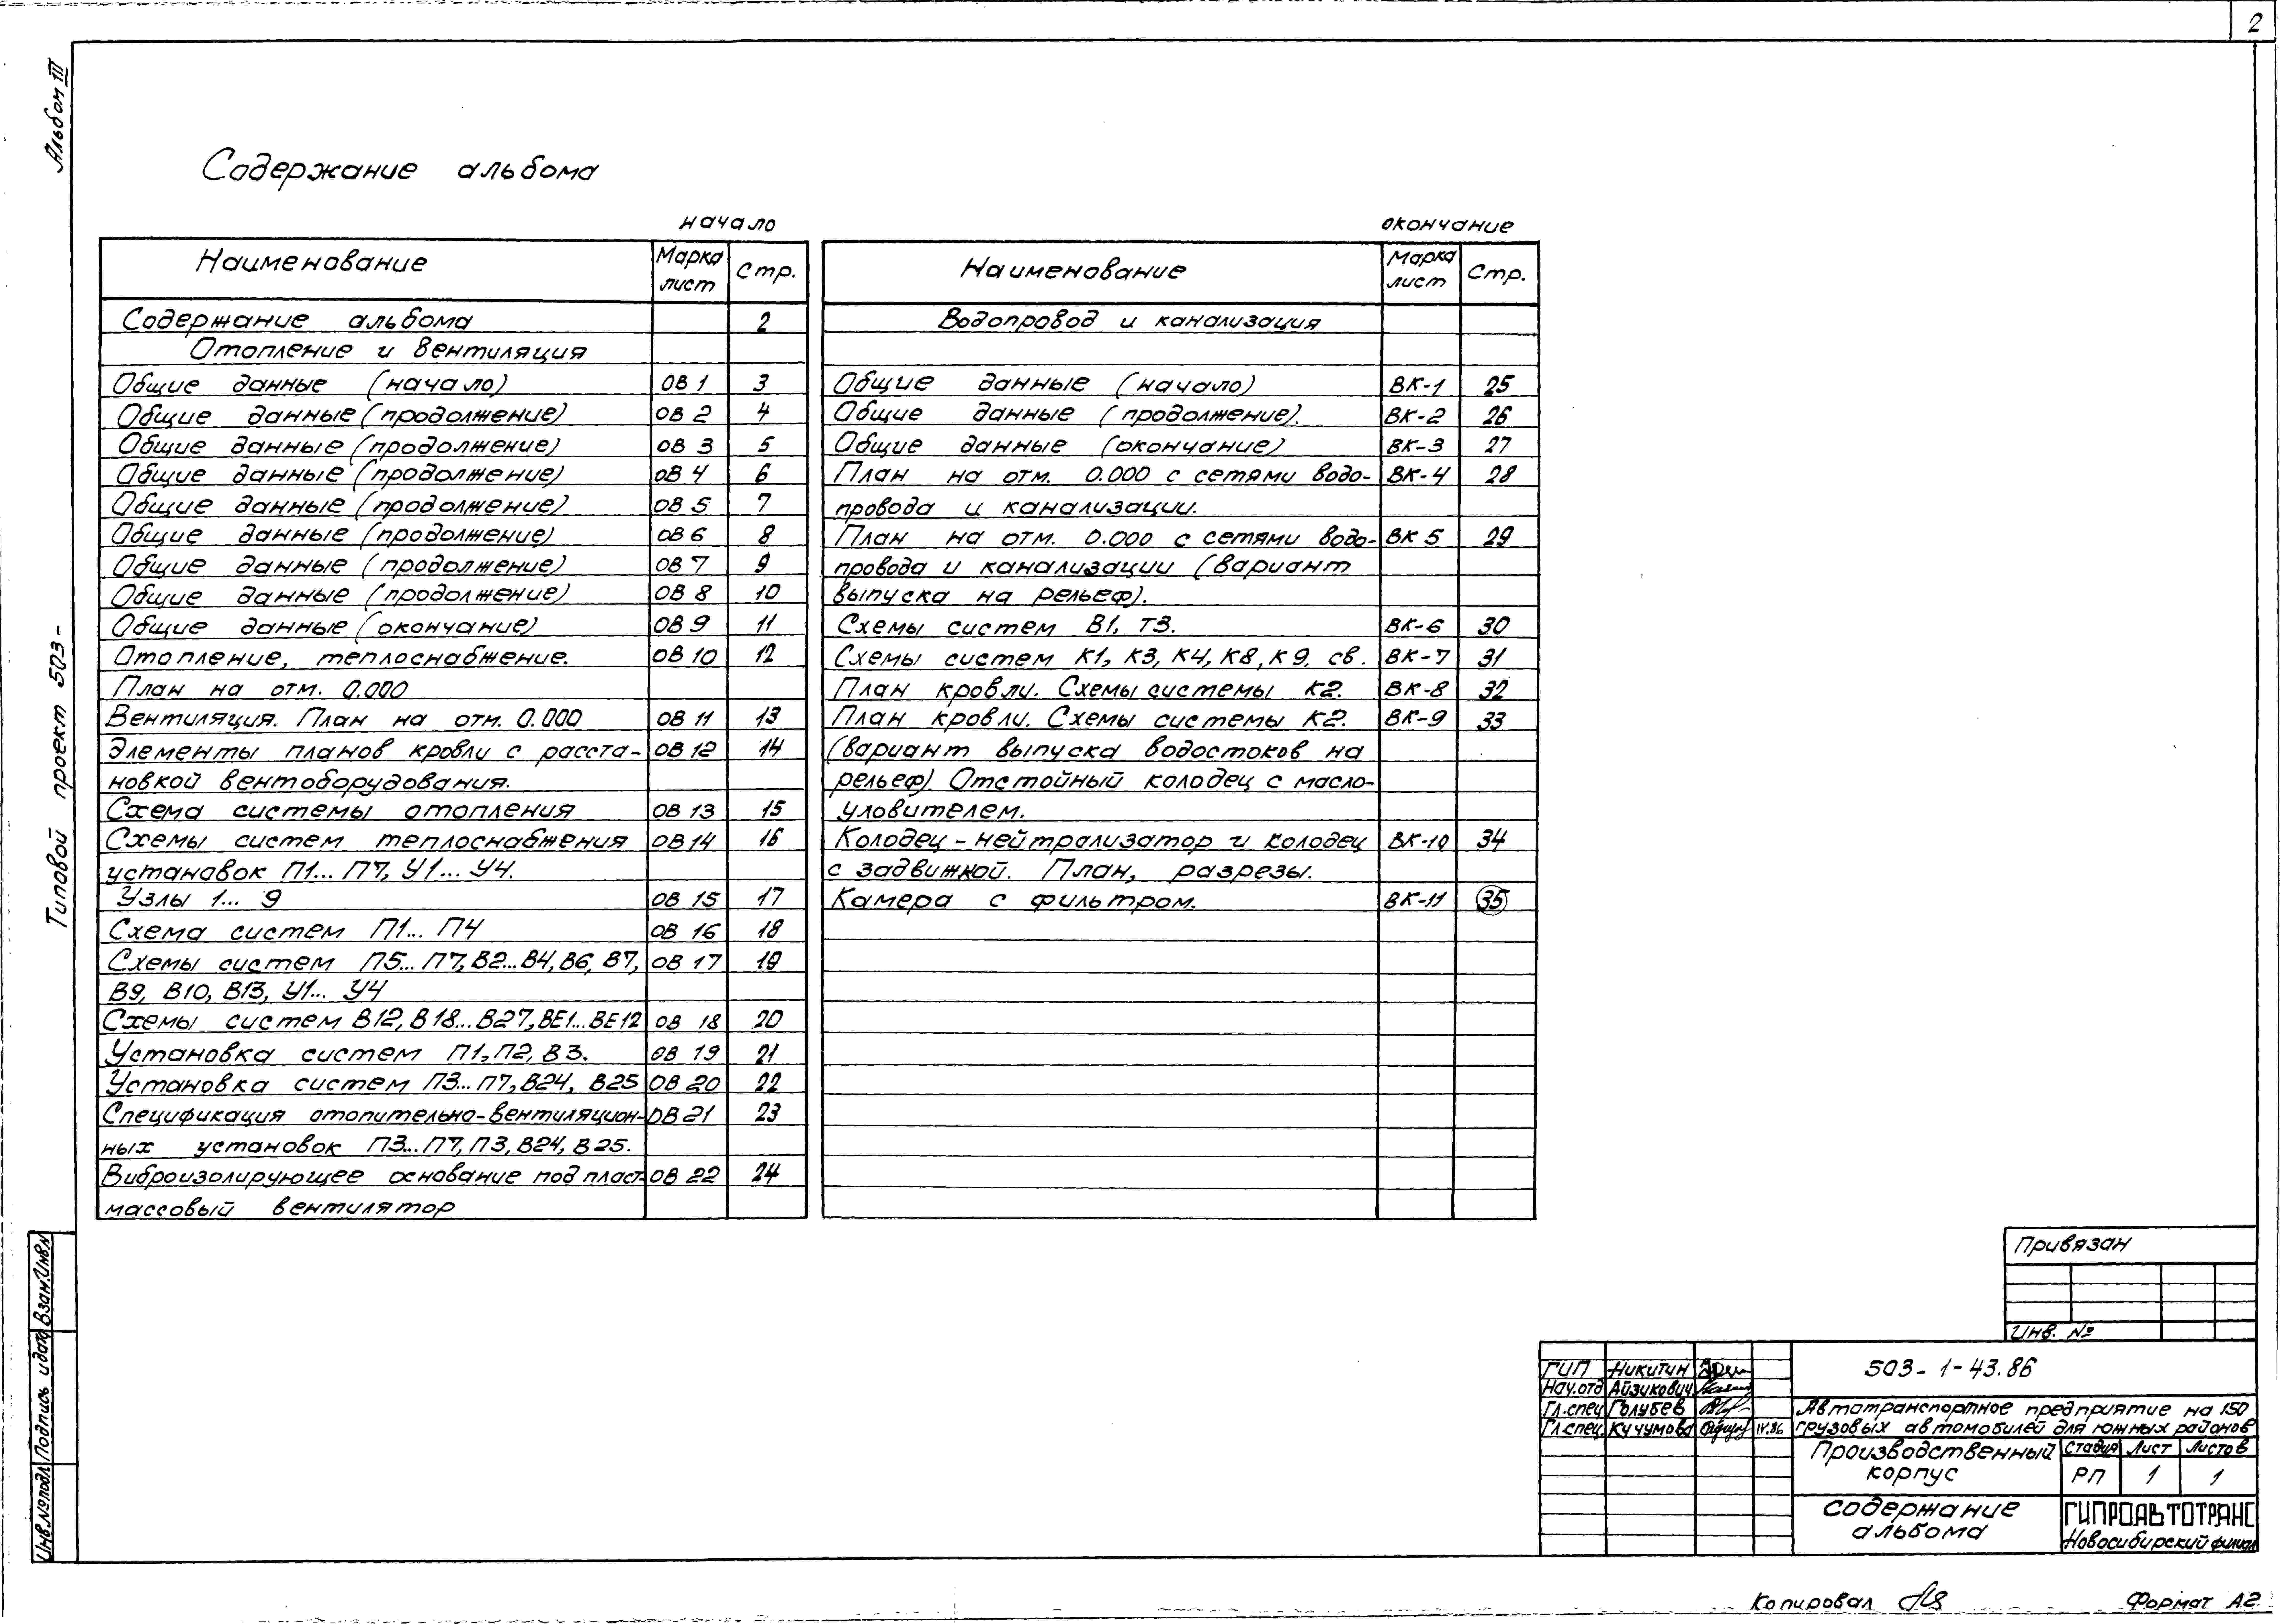 2
Альбом III
Типовой проект 503-
Содержание альбома
начало
Наименование Марка лист Стр.
Содержание альбома 2
Отопление и вентиляция
Общие данные (начало) ОВ 1 3
Общие данные (продолжение) ОВ 2 4
Общие данные (продолжение) ОВ 3 5
Общие данные (продолжение) ОВ 4 6
Общие данные (продолжение) ОВ 5 7
Общие данные (продолжение) ОВ 6 8
Общие данные (продолжение) ОВ 7 9
Общие данные (продолжение) ОВ 8 10
Общие данные (окончание) ОВ 9 11
Отопление, теплоснабжение. ОВ 10 12
План на отм. 0.000
Вентиляция. План на отм. 0.000 ОВ 11 13
Элементы планов кровли с расста- ОВ 12 14
новкой вентоборудования.
Схема системы отопления ОВ 13 15
Схемы систем теплоснабжения ОВ 14 16
установок П1... П7, У1... У4.
Узлы 1... 9 ОВ 15 17
Схема систем П1... П4 ОВ 16 18
Схемы систем П5... П7, В2...В4, В6, В7, ОВ 17 19
В9, В10, В13, У1... У4
Схемы систем В12, В18...В27, ВЕ1...ВЕ12 ОВ 18 20
Установка систем П1, П2, В3. ОВ 19 21
Установка систем П3...П7, В24, В25 ОВ 20 22
Спецификация отопительно-вентиляцион- ОВ 21 23
ных установок П3...П7, П3, В24, В25.
Виброизолирующее основание под пласт- ОВ 22 24
массовый вентилятор
окончание
Наименование Марка лист Стр.
Водопровод и канализация
Общие данные (начало) ВК-1 25
Общие данные (продолжение). ВК-2 26
Общие данные (окончание) ВК-3 27
План на отм. 0.000 с сетями водо- ВК-4 28
провода и канализации.
План на отм. 0.000 с сетями водо- ВК 5 29
провода и канализации (вариант
выпуска на рельеф).
Схемы систем В1, Т3. ВК-6 30
Схемы систем К1, К3, К4, К8, К9, св. ВК-7 31
План кровли. Схемы системы К2. ВК-8 32
План кровли. Схемы системы К2. ВК-9 33
(вариант выпуска водостоков на
рельеф). Отстойный колодец с масло-
уловителем.
Колодец-нейтрализатор и колодец ВК-10 34
с задвижкой. План, разрезы.
Камера с фильтром. ВК-11 35
Инв.№подл Подпись и дата Взам.Инв.№
Привязан
Инв. №
ГИП Никитин
Нач.отд Айзикович
Гл.спец Голубев
Гл.спец. Кучумова IV.86
503-1-43.86
Автотранспортное предприятие на 150
грузовых автомобилей для южных районов
Производственный корпус
Стадия Лист Листов
РП 1 1
содержание альбома
ГИПРОАВТОТРАНС
Новосибирский филиал
Копировал
Формат А2